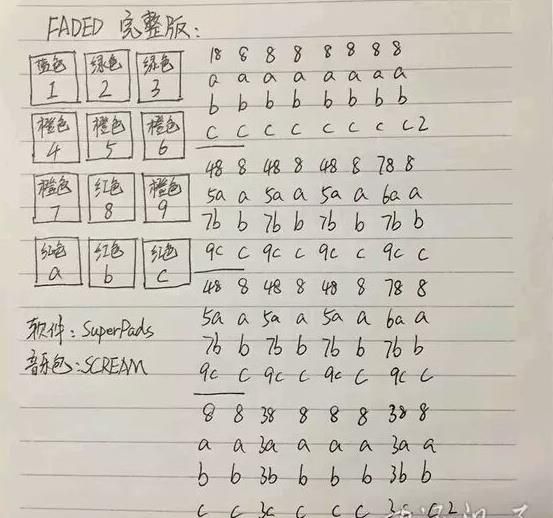 FADED 完整版:
蓝色 绿色 绿色
1 2 3
橙色 橙色 橙色
4 5 6
橙色 红色 橙色
7 8 9
红色 红色 红色
a b c
软件: SuperPads
音乐包: SCREAM
18 8 8 8 8 8 8 8
a a a a a a a a
b b b b b b b b
c c c c c c c c2
48 8 48 8 48 8 78 8
5a a 5a a 5a a 6a a
7b b 7b b 7b b 7b b
9c c 9c c 9c c 9c c
48 8 48 8 48 8 78 8
5a a 5a a 5a a 6a a
7b b 7b b 7b b 7b b
9c c 9c c 9c c 9c c
8 8 38 8 8 8 38 8
a a 3a a a a 3a a
b b 3b b b b 3b b
c c 3c c c c 3c c2